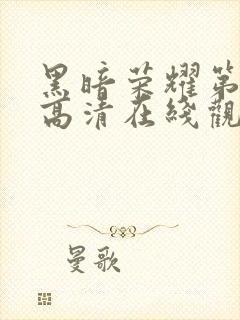 黑暗荣耀第
高清在线觀
曼歌